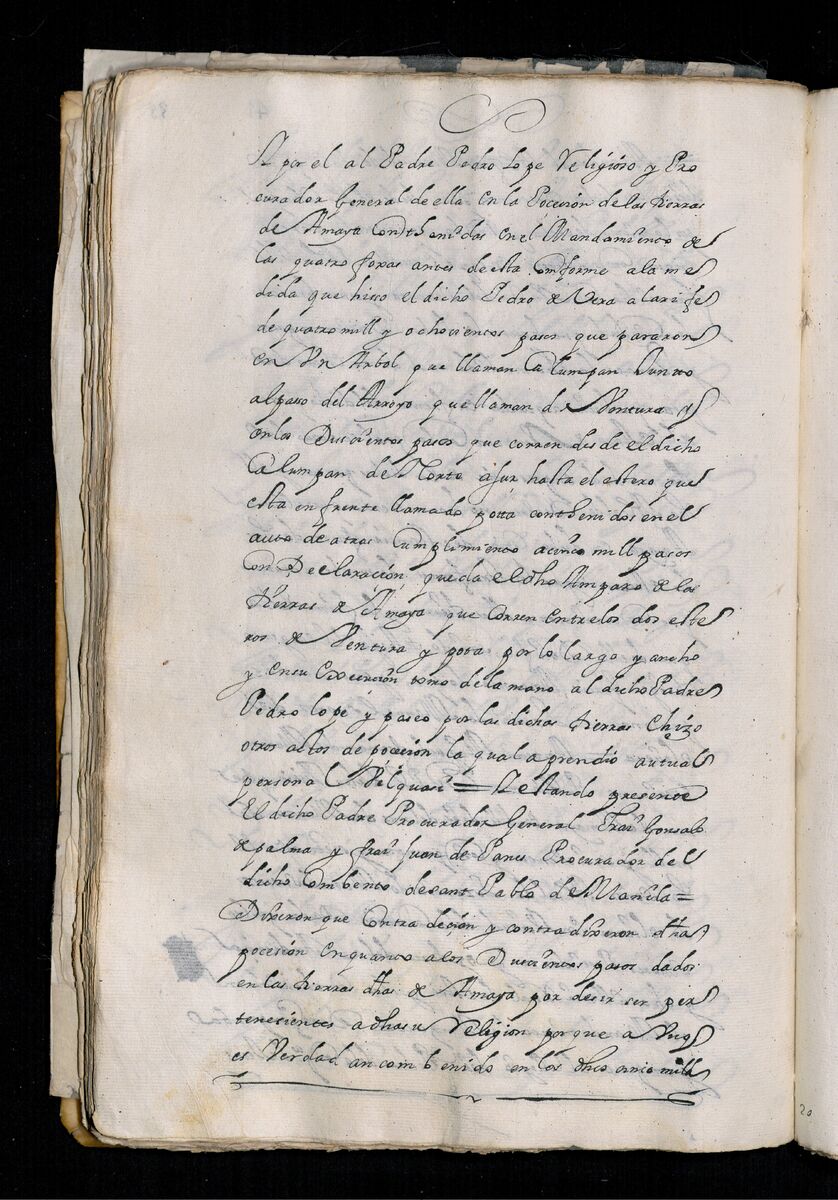 A por el al Padre Pedro Lope Religioso y Pro
curador General de ella en la Pocesion de las tierras
de Amaya Conthenidas en el Mandamiento de
las quatro foxas antes de esta Comforme a la me
dida que hisso el dicho Pedro de Vera alarife
de quatro mill y ochocientos pasos que pararon
en Vn Arbol que llaman Calumpan Junto
al passo del Arroyo que llaman de Ventura y
en los Duscientos pasos que corren desde el dicho
Calumpan de Norte a sur hasta el estero que
esta en frente llamado pota conthenidos en el
auto de atras Cumplimiento a cinco mill pasos
Con Declaración queda el dho Amparo de las
tierras de Amaya que corren entre los dos este
ros de Ventura y pota por lo largo y ancho
y en su Execución tomo de la mano al dicho Padre
Pedro lope y paseo por las dichas tierras e hizo
otros actos de poceción la qual aprendio autual
persona l Velquasi = Y estando presente
El dicho Padre Procurador General Frai Gonsalo
de palma y frai Juan de Panes Procurador del
dicho Combento de sant Pablo de Manila =
Dixeron que Contradecian y contradixeron dha
pocesión en quanto a los Duscientos pasos dados
en las tierras dhas de Amaya por desir ser per
tenecientes a dha su Religion porque a Vnq
es Verdad an combenido en los dhos cinco mill
20